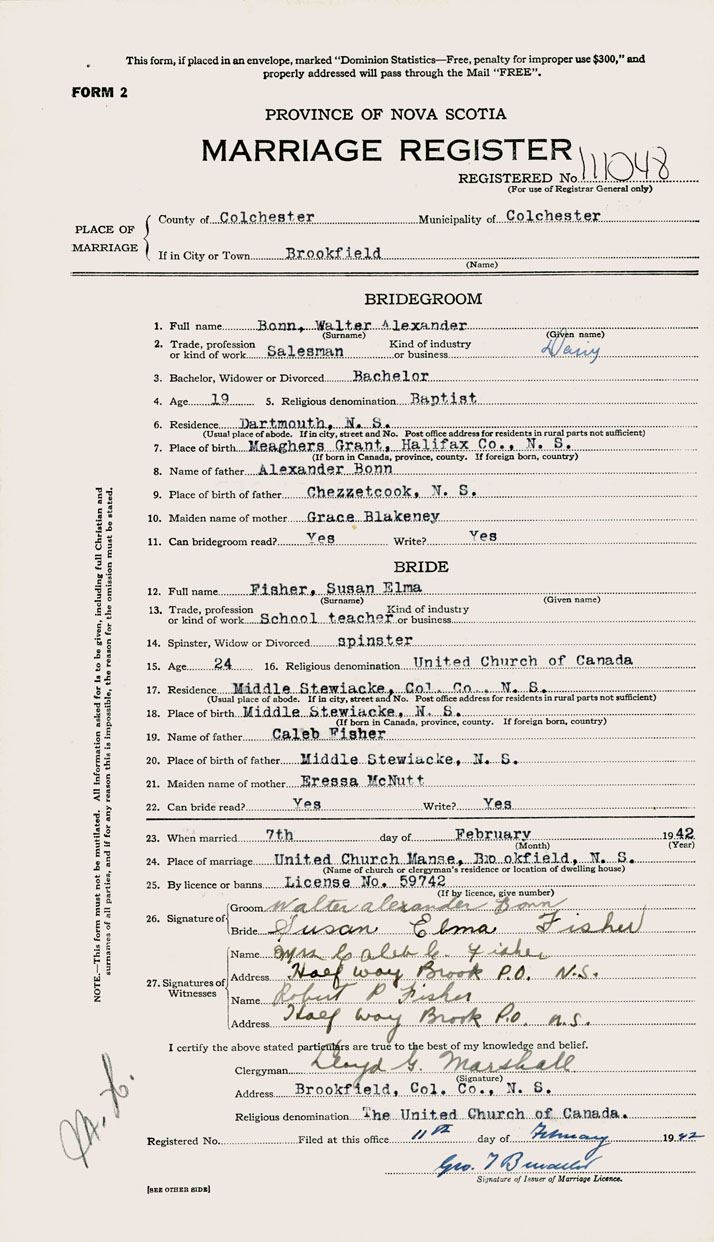 This form, if placed in an envelope, marked "Dominion Statistics—Free, penalty for improper use $300," and
properly addressed will pass through the Mail "FREE".
FORM 2
PROVINCE OF NOVA SCOTIA
MARRIAGE REGISTER
REGISTERED No. 111048
(For use of Registrar General only)
PLACE OF MARRIAGE
County of Colchester Municipality of Colchester
If in City or Town Brookfield
(Name)
BRIDEGROOM
1. Full name Bonn, Walter Alexander
(Surname) (Given name)
2. Trade, profession or kind of work Salesman Kind of industry or business Dairy
3. Bachelor, Widower or Divorced Bachelor
4. Age 19 5. Religious denomination Baptist
6. Residence Dartmouth, N. S.
(Usual place of abode. If in city, street and No. Post office address for residents in rural parts not sufficient)
7. Place of birth Meaghers Grant, Halifax Co., N. S.
(If born in Canada, province, county. If foreign born, country)
8. Name of father Alexander Bonn
9. Place of birth of father Chezzetcook, N. S.
10. Maiden name of mother Grace Blakeney
11. Can bridegroom read? Yes Write? Yes
BRIDE
12. Full name Fisher, Susan Elma
(Surname) (Given name)
13. Trade, profession or kind of work School teacher Kind of industry or business
14. Spinster, Widow or Divorced spinster
15. Age 24 16. Religious denomination United Church of Canada
17. Residence Middle Stewiacke, Col. Co., N. S.
(Usual place of abode. If in city, street and No. Post office address for residents in rural parts not sufficient)
18. Place of birth Middle Stewiacke, N. S.
(If born in Canada, province, county. If foreign born, country)
19. Name of father Caleb Fisher
20. Place of birth of father Middle Stewiacke, N. S.
21. Maiden name of mother Eressa McNutt
22. Can bride read? Yes Write? Yes
23. When married 7th day of February 1942
(Month) (Year)
24. Place of marriage United Church Manse, Brookfield, N. S.
(Name of church or clergyman's residence or location of dwelling house)
25. By licence or banns License No. 59742
(If by licence, give number)
26. Signature of
Groom Walter alexander Bonn
Bride Susan Elma Fisher
27. Signatures of Witnesses
Name Mrs Caleb C. Fisher
Address Half Way Brook P.O. N.S.
Name Robert P Fisher
Address Half Way Brook P.O. n.s.
I certify the above stated particulars are true to the best of my knowledge and belief.
Clergyman Lloyd G. Marshall
(Signature)
Address Brookfield, Col. Co., N. S.
Religious denomination The United Church of Canada.
Registered No. Filed at this office 11th day of February 1942
Geo. T
Signature of Issuer of Marriage Licence.
[SEE OTHER SIDE]
NOTE.—This form must not be mutilated. All information asked for is to be given, including full Christian and
surnames of all parties, and if for any reason this is impossible, the reason for the omission must be stated.